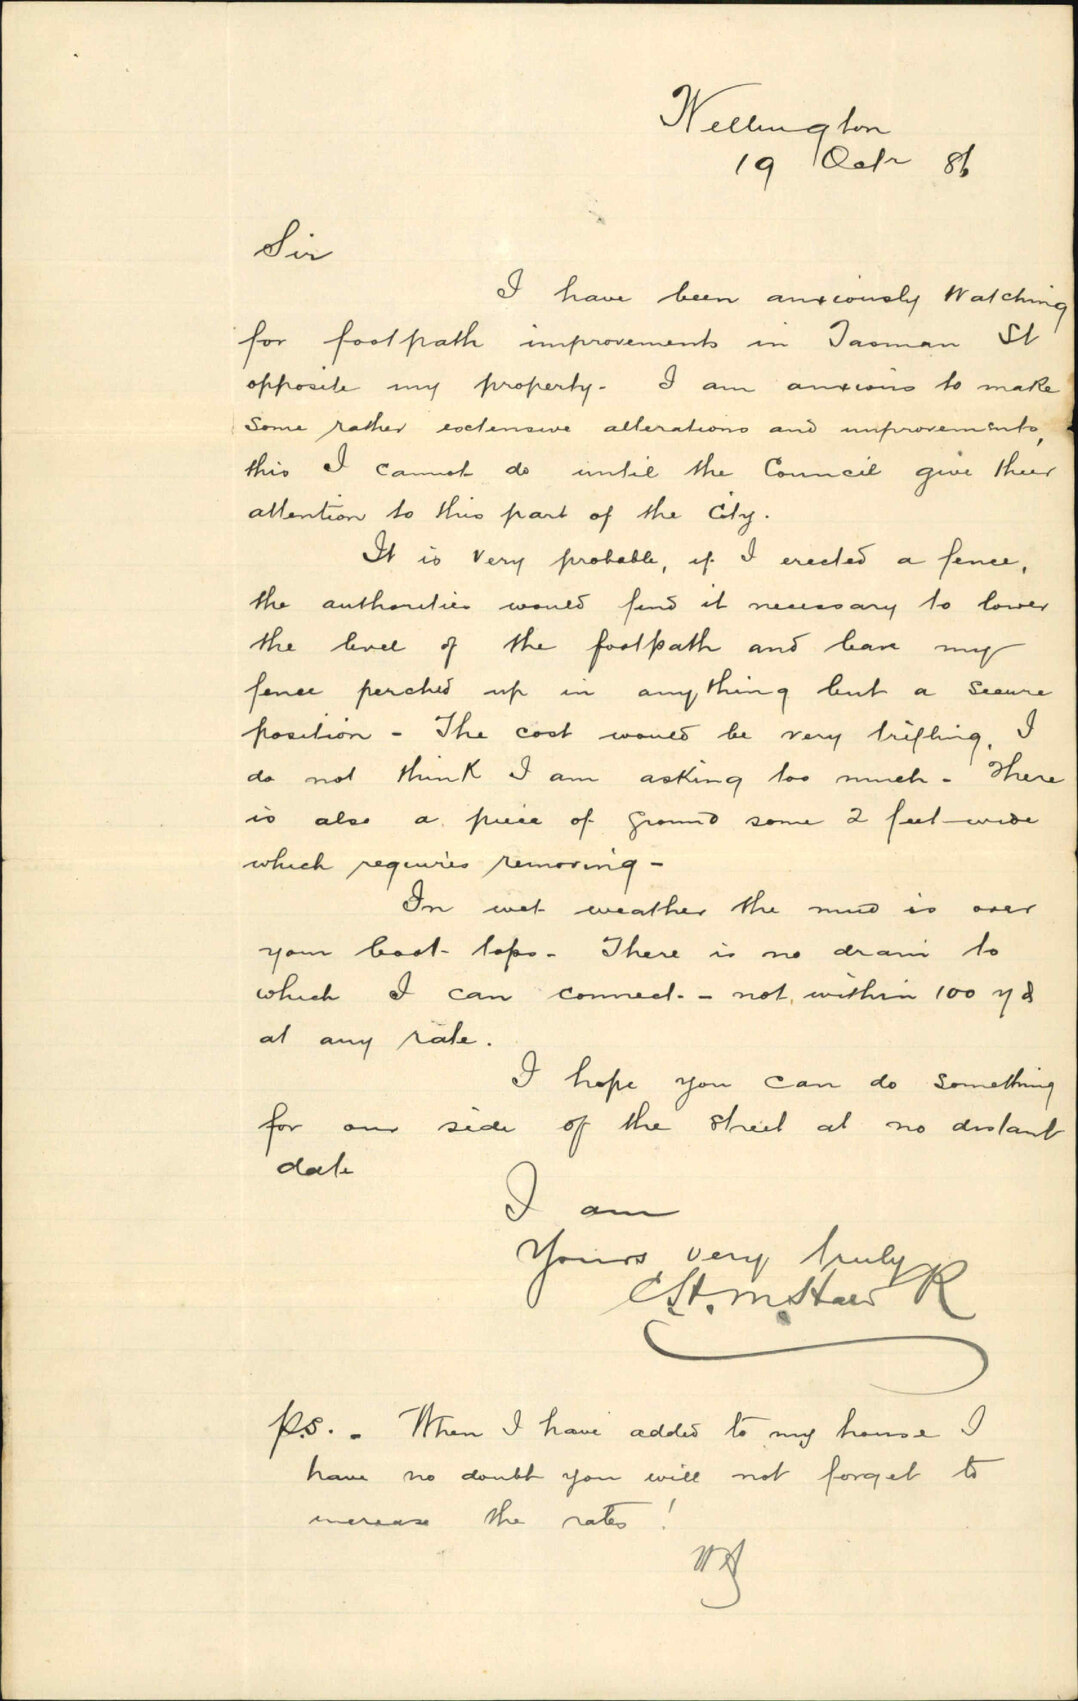 Wellington
19 Octr 86
Sir
I have been anxiously watching
for footpath improvements in Tasman St
opposite my property - I am anxious to make
some rather extensive alterations and improvements,
this I cannot do until the Council give their
attention to this part of the City.
It is very probable, if I erected a fence,
the authorities would find it necessary to lower
the level of the footpath and leave my
fence perched up in anything but a secure
position - The cost would be very trifling, I
do not think I am asking too much - There
is also a piece of ground some 2 feet wide
which requires removing -
In wet weather the mud is over
your boot tops - There is no drain to
which I can connect - not within 100 yds
at any rate.
I hope you can do something
for our side of the street at no distant
date
I am
Yours very truly
P.S. - When I have added to my house I
have no doubt you will not forget to
increase the rates !